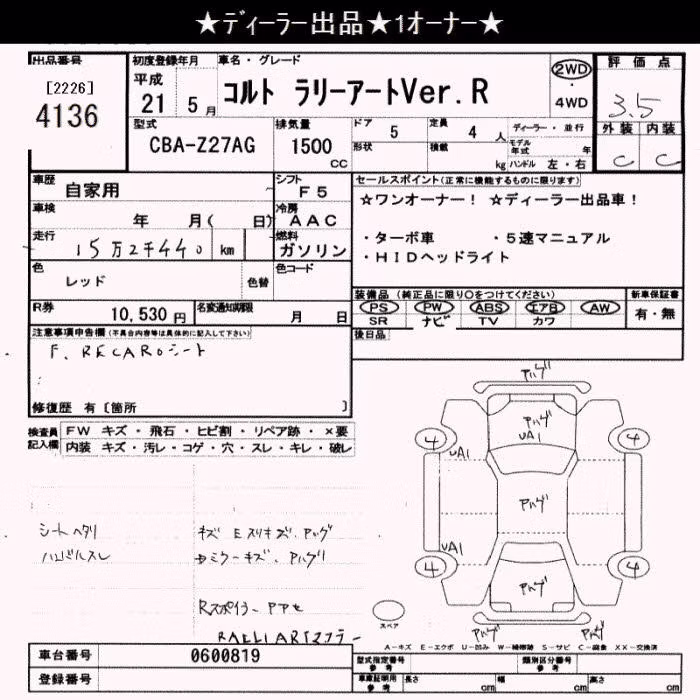 ★ディーラー出品★1オーナー★
出品番号
[2226]
4136
初度登録年月
平成
21 5 月
車名・グレード
コルト ラリーアートVer.R
2WD
・
4WD
評価点
3.5
外装 内装
C C
型式
CBA-Z27AG
排気量
1500
CC
ドア 5
定員 4 人
ディーラー・並行
形状
積載
kg
モデル年式 年
ハンドル 左・右
車歴
自家用
シフト
F5
車検
年 月( 日)
冷房
AAC
走行
15万2千440 km
燃料
ガソリン
色
レッド
色替
色コード
セールスポイント(正常に機能するものに限ります)
☆ワンオーナー! ☆ディーラー出品車!
・ターボ車 ・5速マニュアル
・HIDヘッドライト
R券
10,530 円
名変通知期限
月 日
装備品 (純正品に限り○をつけてください)
PS PW ABS エアB AW
SR ナビ TV カワ
新車保証書
有・無
後日品
注意事項申告欄(不具合内容等は具体的に記入して下さい)
F. RECAROシート
修復歴 有〔箇所 〕
検査員記入欄
FW キズ・飛石・ヒビ割・リペア跡・×要
内装 キズ・汚レ・コゲ・穴・スレ・キレ・破レ
シートヘタリ
ハンドルスレ
キズ Eスリキズ. アハゲ
ドミラーキズ. アハゲ
Rスポイラー
RALLIARTマフラー
アハゲ
アハゲ
UA1
4 4
UA1
アハゲ
UA1
4 4
アハゲ
アハゲ アハゲ
スペア
A-キズ E-エクボ U-凹み W-補修跡 S-サビ C-腐食 XX-交換済
車台番号
0600819
登録番号
型式指定番号
参考
類別区分番号
参考
車庫証明用
参考
長さ cm
幅 cm
高さ cm